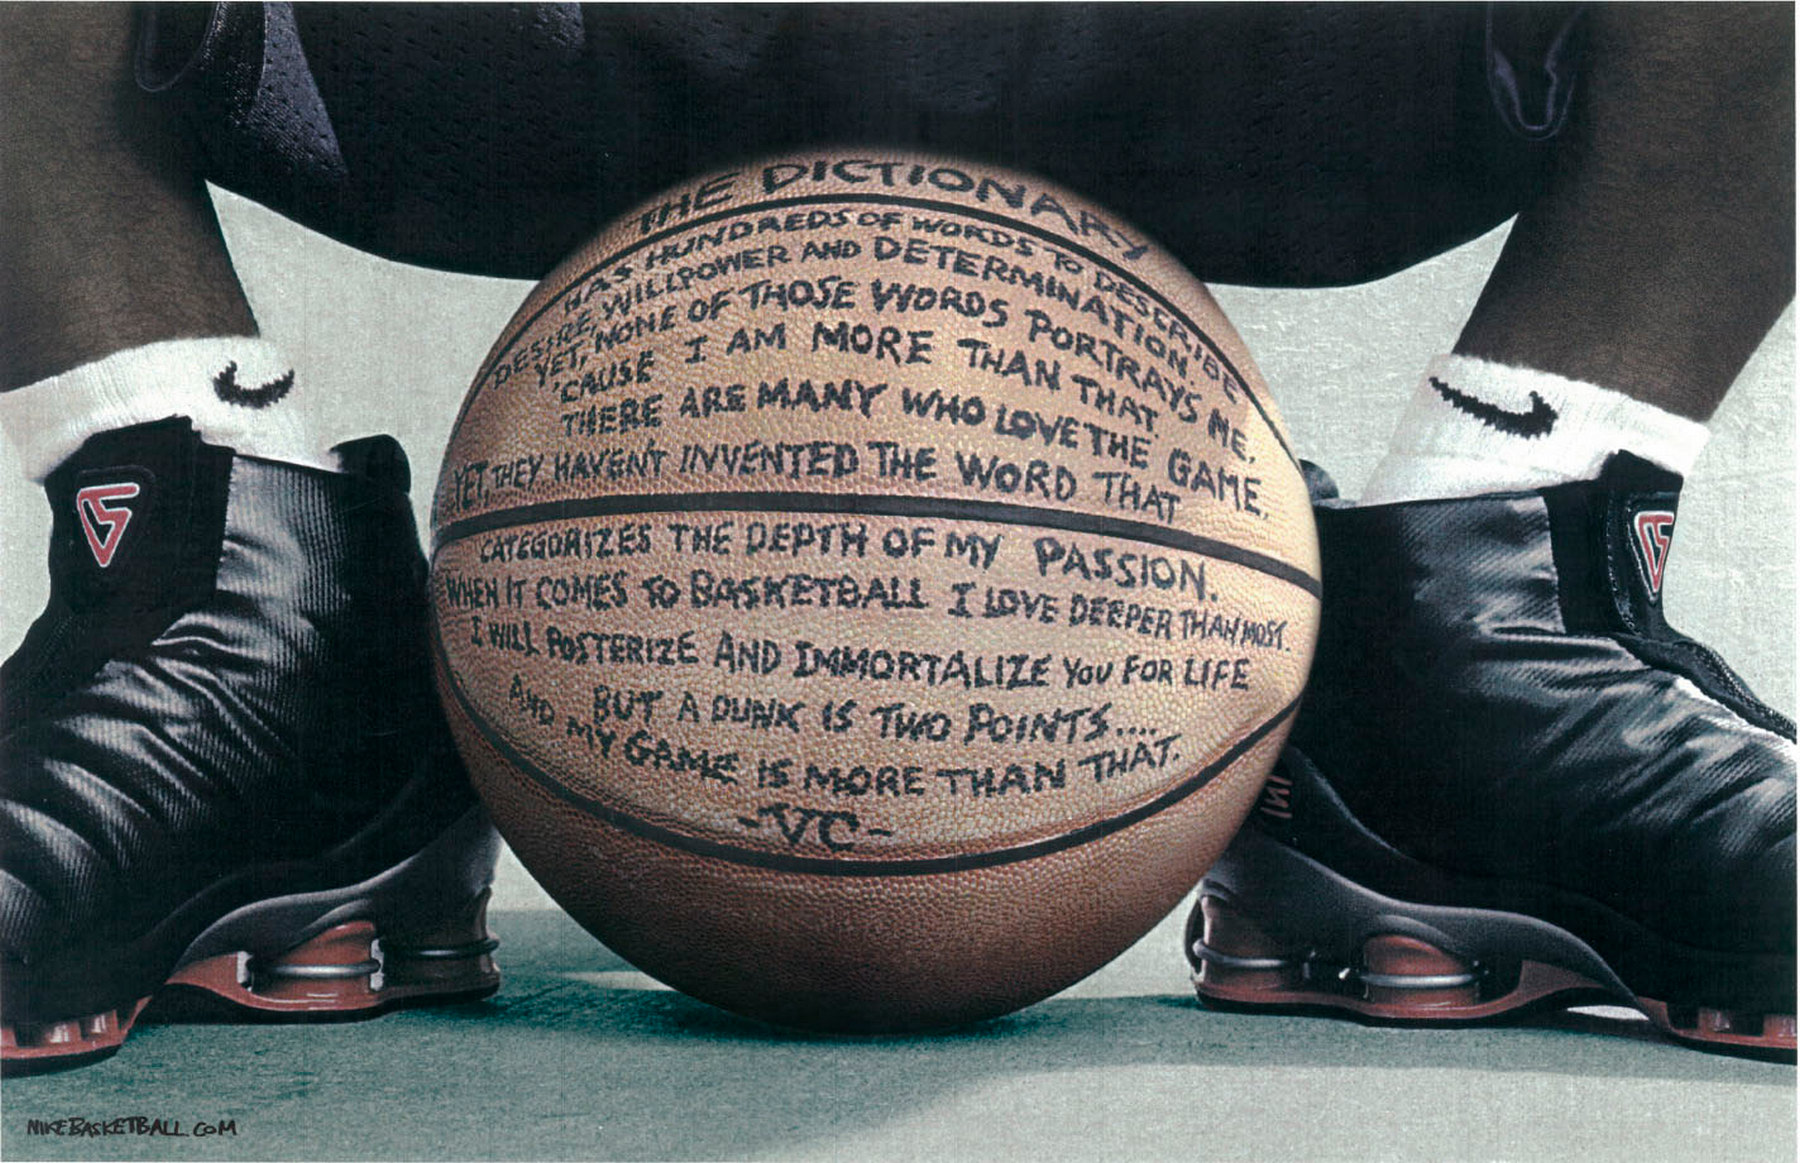 THE DICTIONARY
HAS HUNDREDS OF WORDS TO DESCRIBE
DESIRE, WILLPOWER AND DETERMINATION.
YET, NONE OF THOSE WORDS PORTRAYS ME,
'CAUSE I AM MORE THAN THAT.
THERE ARE MANY WHO LOVE THE GAME,
YET, THEY HAVEN'T INVENTED THE WORD THAT
CATEGORIZES THE DEPTH OF MY PASSION.
WHEN IT COMES TO BASKETBALL I LOVE DEEPER THAN MOST.
I WILL POSTERIZE AND IMMORTALIZE YOU FOR LIFE
BUT A DUNK IS TWO POINTS....
AND MY GAME IS MORE THAN THAT.
-VC-
NIKEBASKETBALL.COM